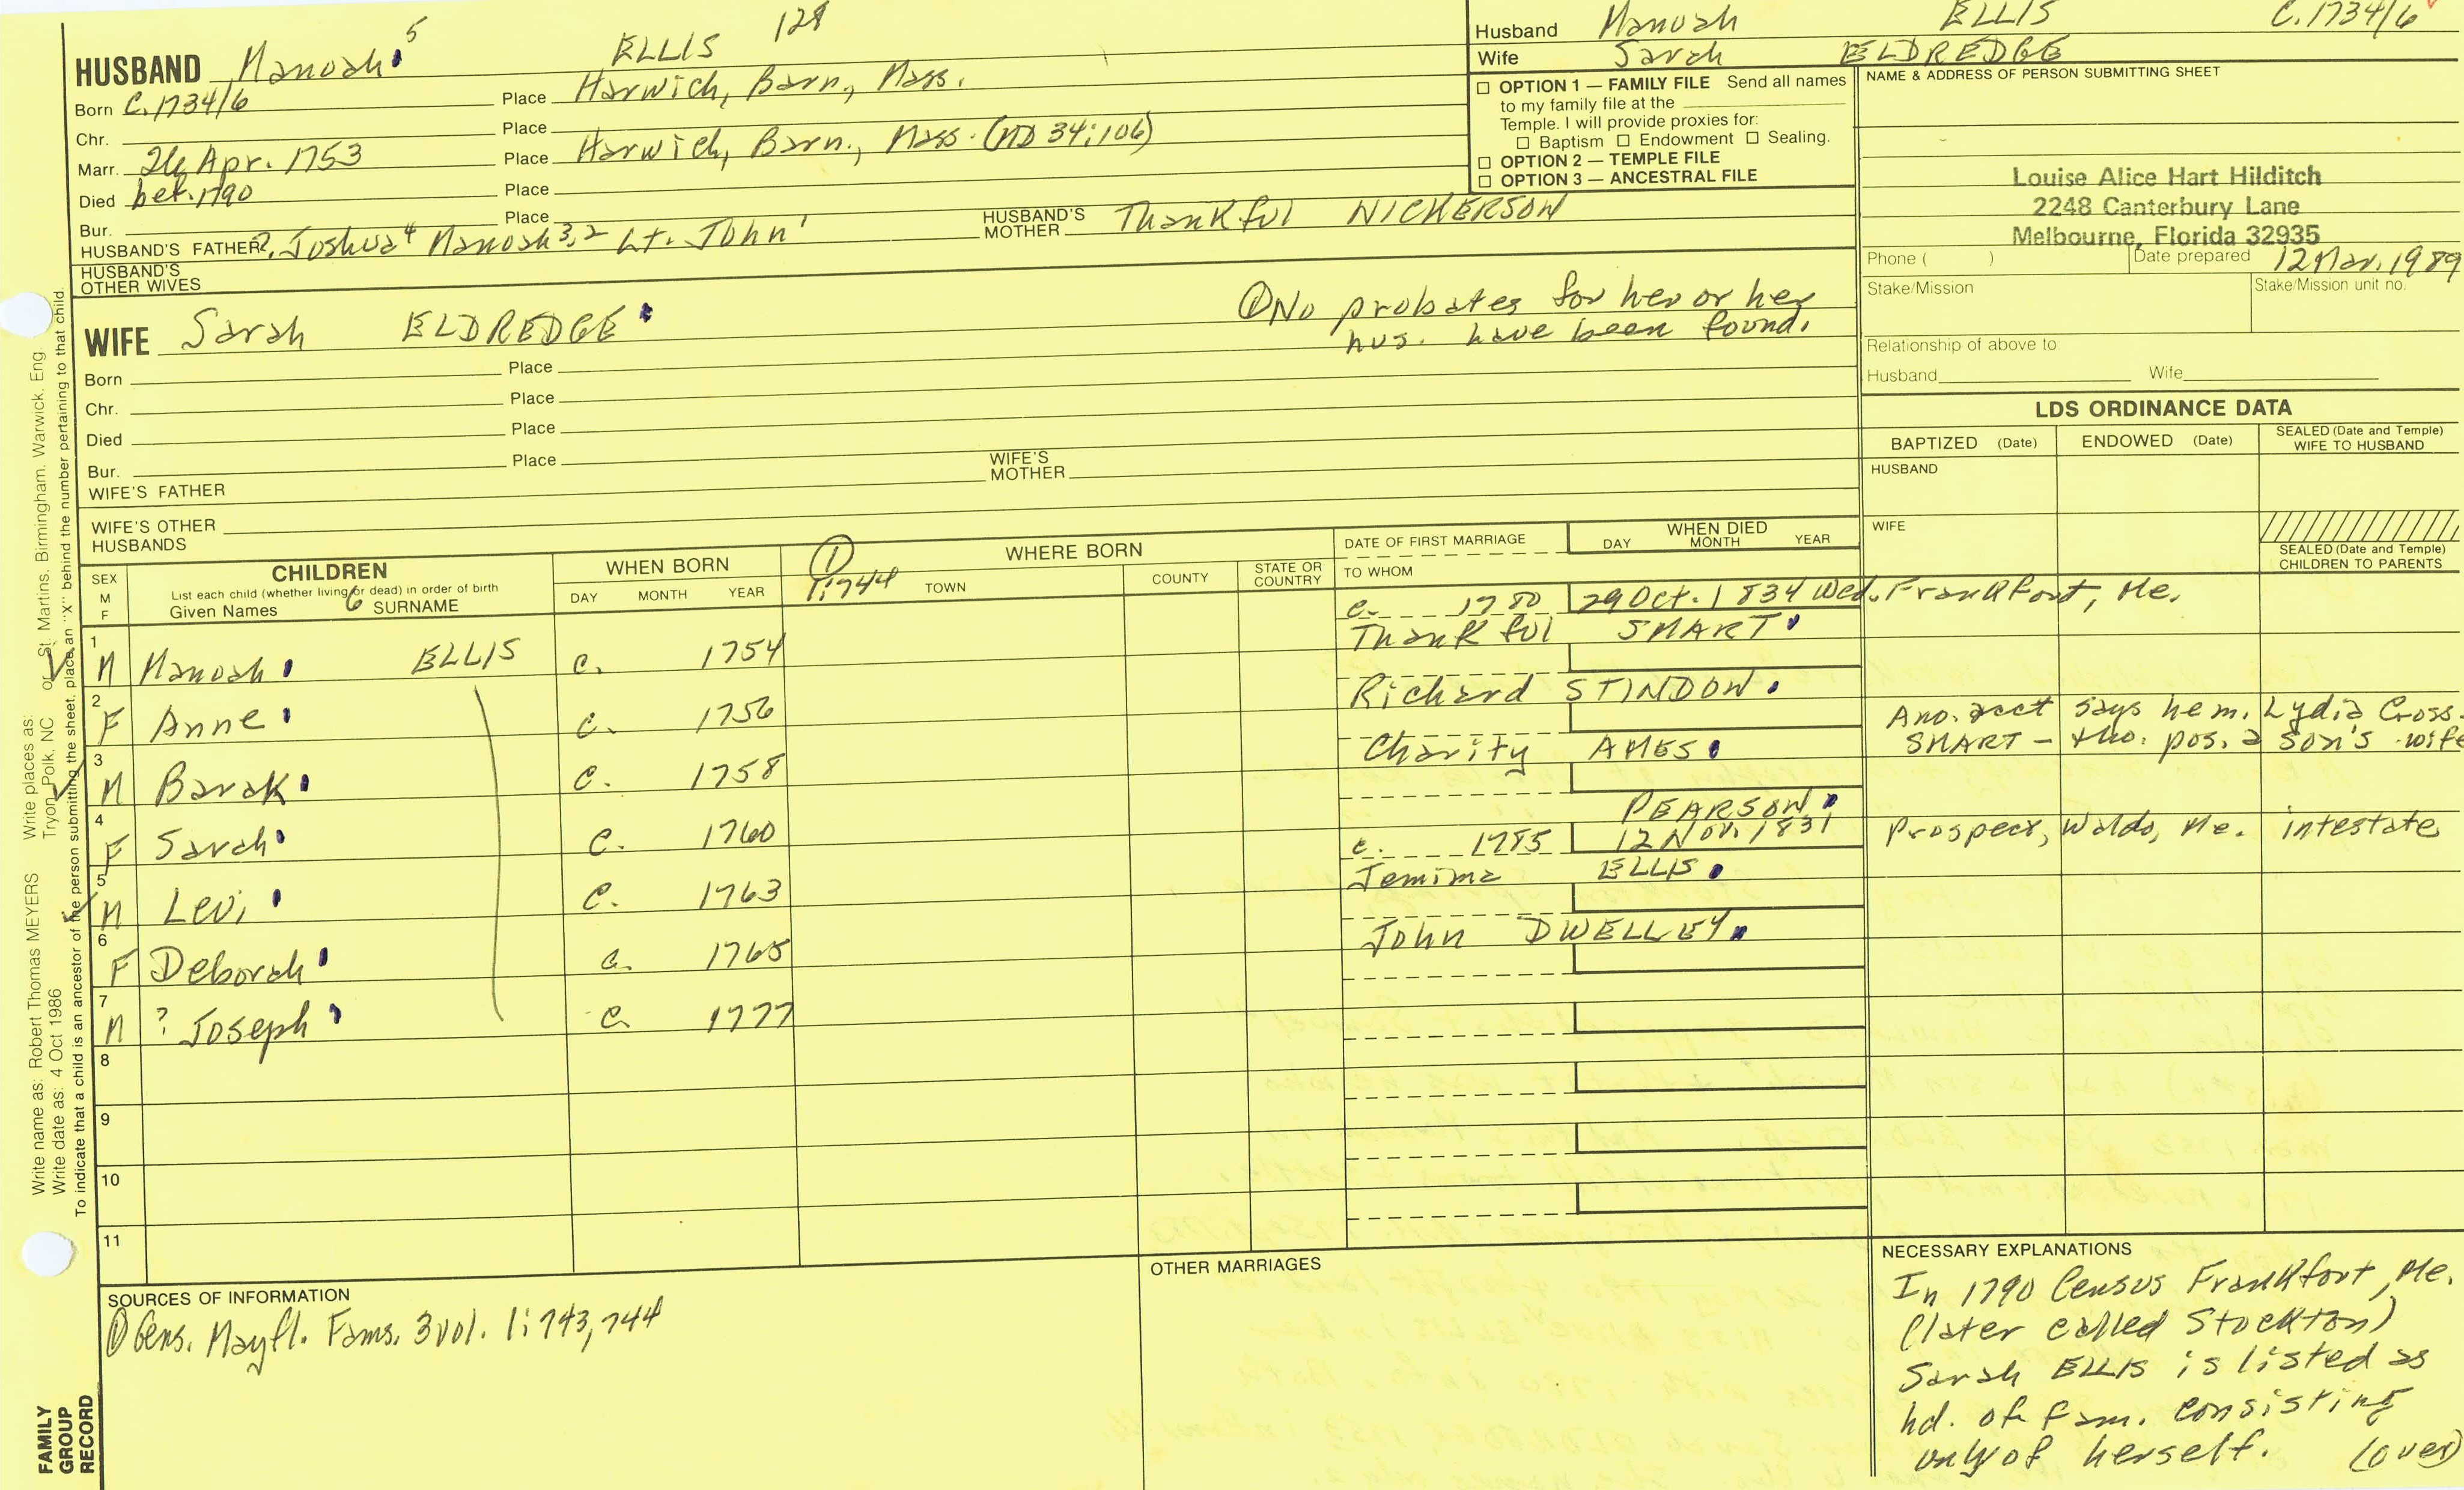 HUSBAND Manoah 5 ELLIS 128
Born C. 1734/6 Place Harwich, Barn., Mass.
Chr. Place
Marr. 26 Apr. 1753 Place Harwich, Barn., Mass. (MD 34:106)
Died bef. 1790 Place
Bur. Place
HUSBAND'S FATHER ?, Joshua4 Manoah3,2 Lt. John1 HUSBAND'S MOTHER Thankful NICKERSON
HUSBAND'S OTHER WIVES
Husband Manoah ELLIS C. 1734/6
Wife Sarah ELDREDGE
☐ OPTION 1 — FAMILY FILE Send all names
to my family file at the
Temple. I will provide proxies for:
☐ Baptism ☐ Endowment ☐ Sealing.
☐ OPTION 2 — TEMPLE FILE
☐ OPTION 3 — ANCESTRAL FILE
NAME & ADDRESS OF PERSON SUBMITTING SHEET
Louise Alice Hart Hilditch
2248 Canterbury Lane
Melbourne, Florida 32935
Phone ( ) Date prepared 12 Mar. 1989
Stake/Mission Stake/Mission unit no.
Relationship of above to
Husband Wife
WIFE Sarah ELDREDGE
①No probates for her or her
hus. have been found.
Born Place
Chr. Place
Died Place
Bur. Place
WIFE'S FATHER WIFE'S MOTHER
WIFE'S OTHER HUSBANDS
LDS ORDINANCE DATA
BAPTIZED (Date) ENDOWED (Date) SEALED (Date and Temple) WIFE TO HUSBAND
HUSBAND
WIFE
SEALED (Date and Temple) CHILDREN TO PARENTS
SEX M F
CHILDREN
List each child (whether living or dead) in order of birth
Given Names 6 SURNAME
WHEN BORN
DAY MONTH YEAR
① 1:744
WHERE BORN
TOWN COUNTY STATE OR COUNTRY
DATE OF FIRST MARRIAGE
TO WHOM
WHEN DIED
DAY MONTH YEAR
1 M Manoah ELLIS c. 1754 c. 1780 29 Oct. 1834 Wed. Frankfort, Me.
Thankful SMART
2 F Anne c. 1756 Richard STINDOW.
Ano. acct says he m. Lydia Cross
SMART - tho. pos. a son's wife
3 M Barak c. 1758 Charity AMES
4 F Sarah c. 1760 PEARSON
5 M Levi c. 1763 c. 1785 12 Nov. 1831 Prospect, Waldo, Me. intestate
Jemima ELLIS
6 F Deborah c. 1765 John DWELLEY
7 M ? Joseph c. 1777
8
9
10
11
SOURCES OF INFORMATION
① Gens. Mayfl. Fams. 3 vol. 1:743,744
OTHER MARRIAGES
NECESSARY EXPLANATIONS
In 1790 Census Frankfort, Me.
(later called Stockton)
Sarah ELLIS is listed as
hd. of fam. consisting
only of herself. (over)
Write name as: Robert Thomas MEYERS Write places as: Tryon, Polk, NC or St. Martins, Birmingham, Warwick, Eng.
Write date as: 4 Oct 1986
To indicate that a child is an ancestor of the person submitting the sheet, place an "X" behind the number pertaining to that child.
FAMILY
GROUP
RECORD